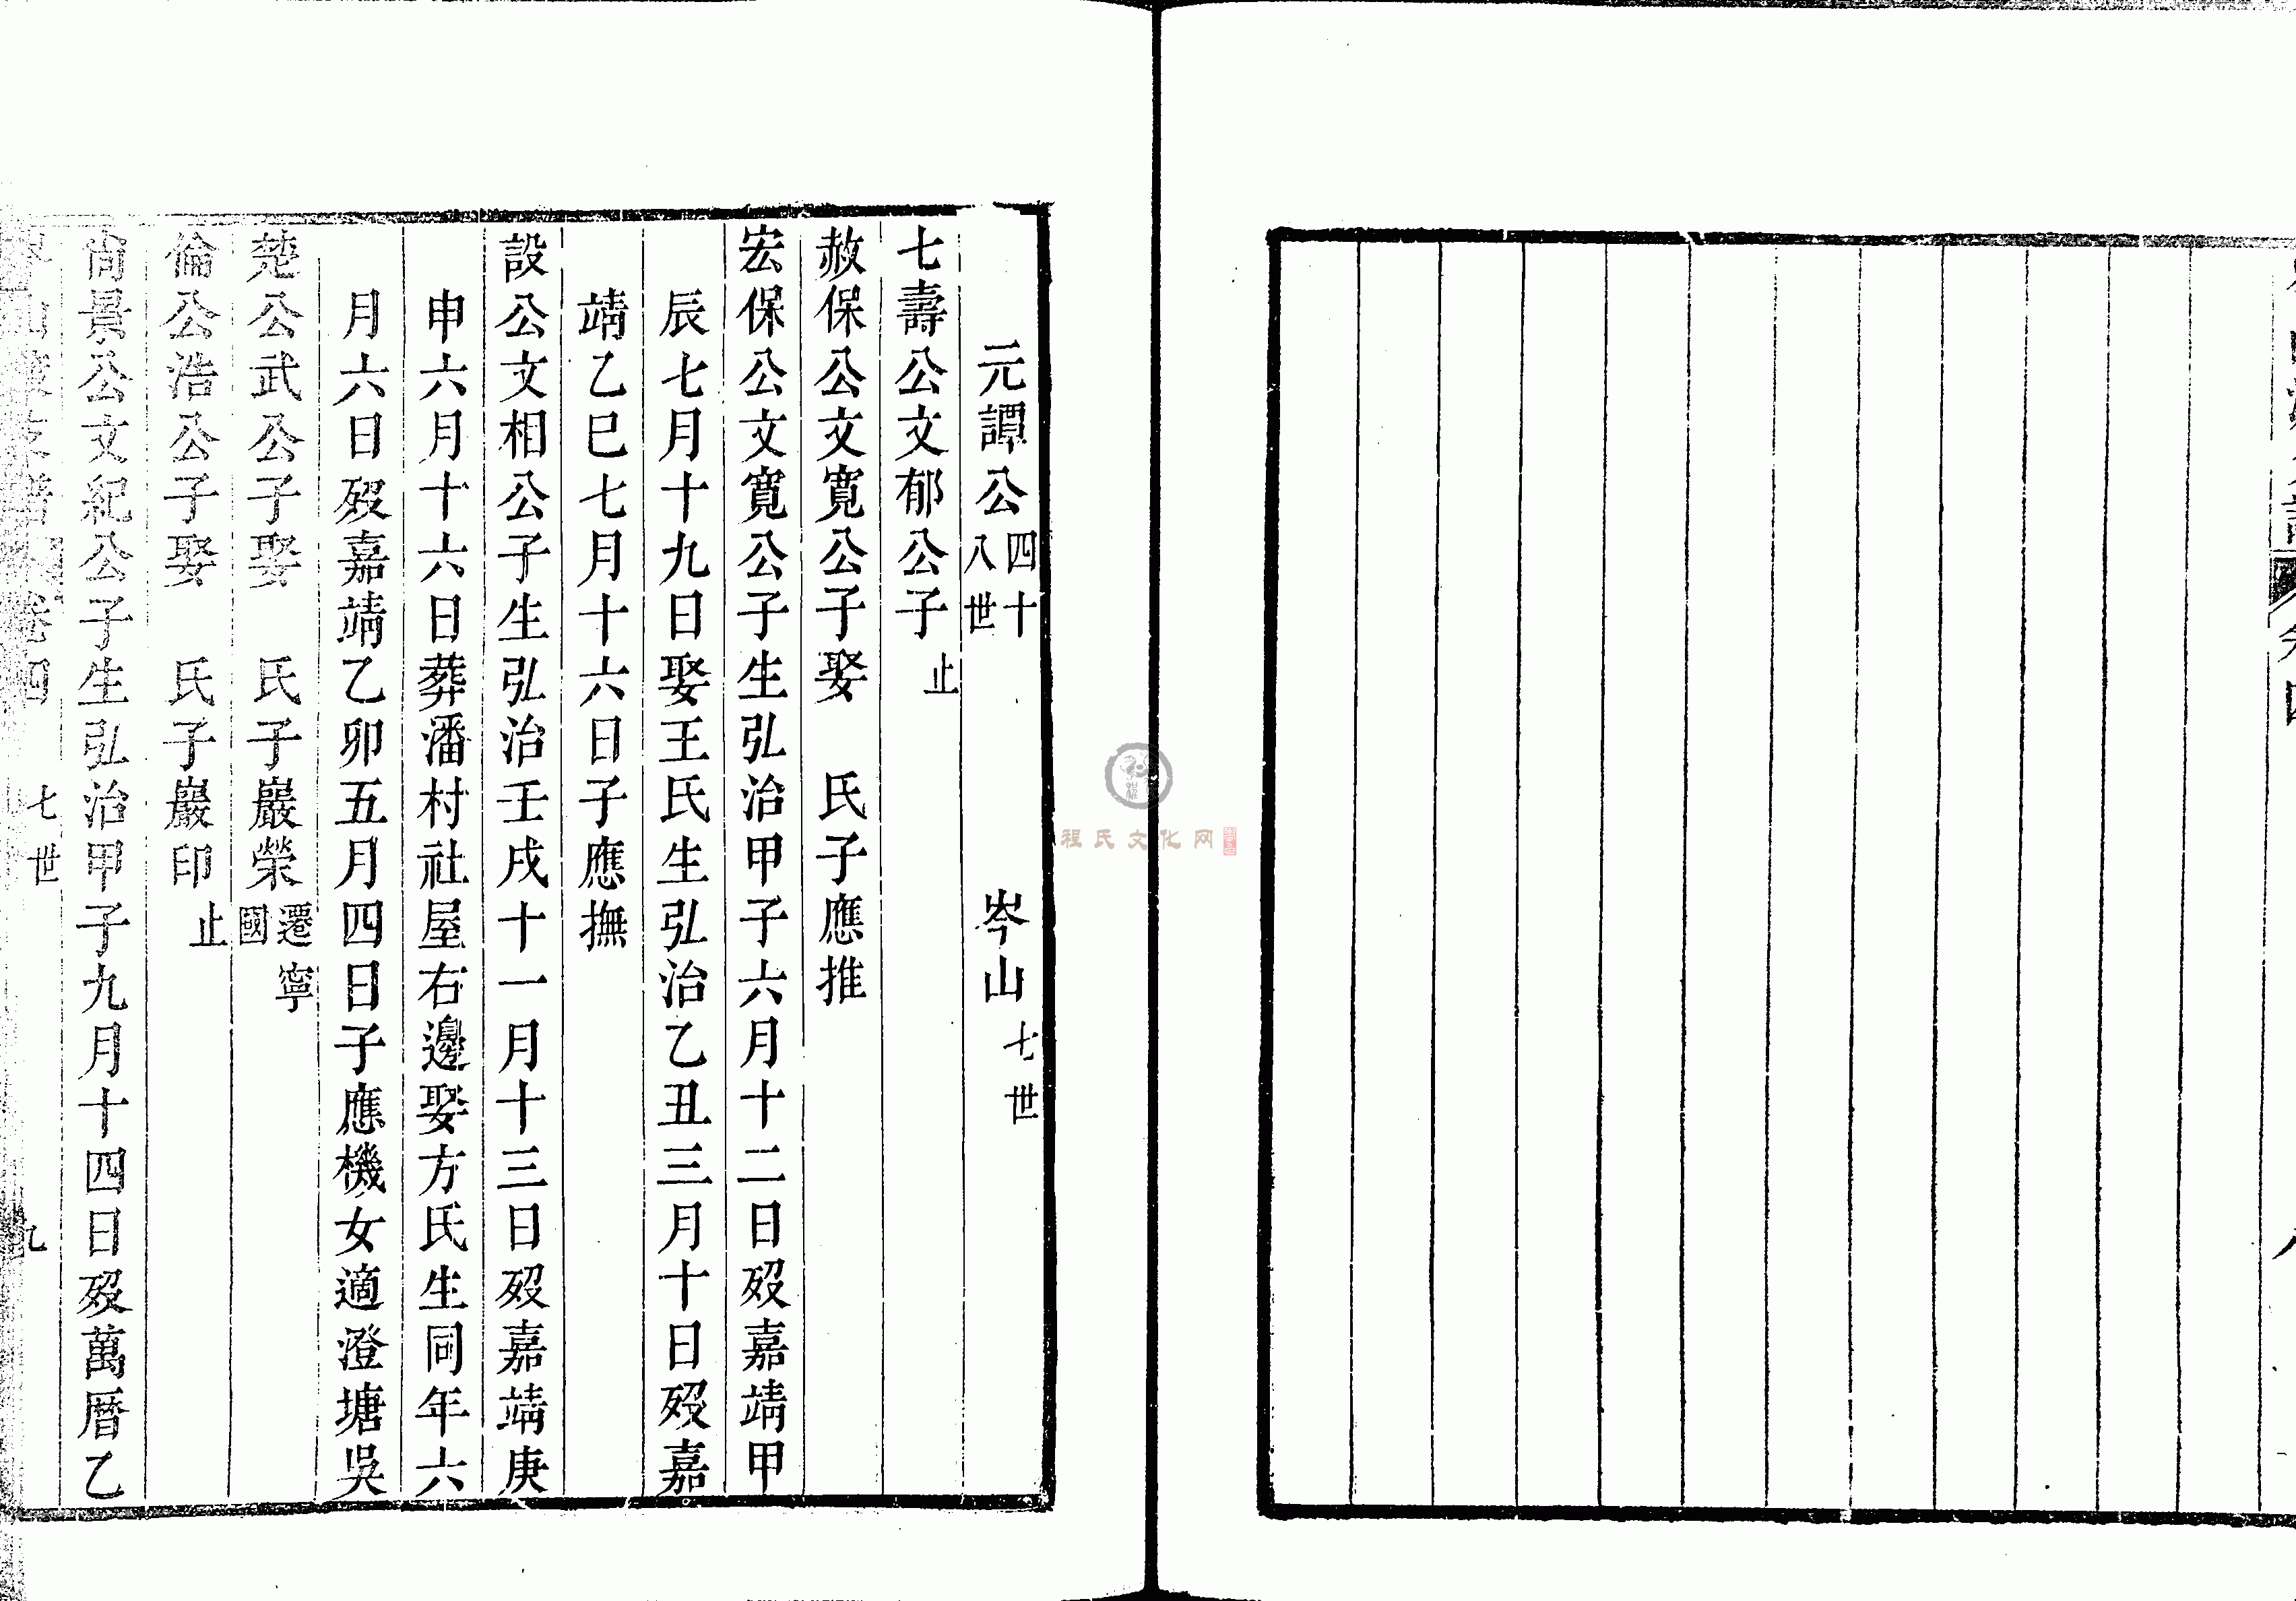 卷四
八
元譚公四十八世 岑山七世
七壽公文郁公子止
赦保公文寬公子娶 氏子應推
宏保公文寬公子生弘治甲子六月十二日歿嘉靖甲
辰七月十九日娶王氏生弘治乙丑三月十日歿嘉
靖乙巳七月十六日子應撫
設公文相公子生弘治壬戌十一月十三日歿嘉靖庚
申六月十六日葬潘村社屋右邊娶方氏生同年六
月六日歿嘉靖乙卯五月四日子應機女適澄塘吳
楚公武公子娶 氏子巖榮遷寧國
倫公浩公子娶 氏子巖印止
尚景公文紀公子生弘治甲子九月十四日歿萬曆乙
卷四 七世 九
程氏文化网